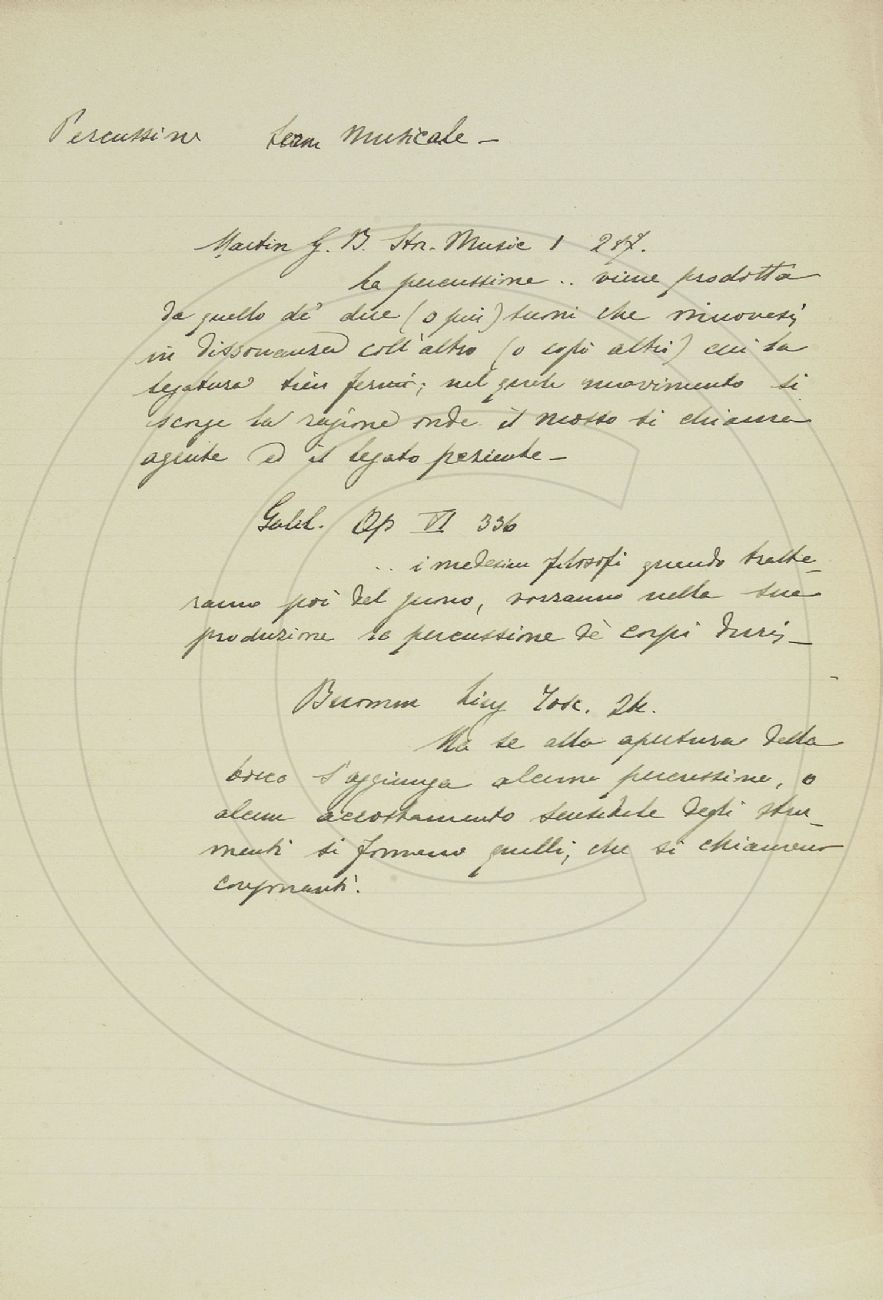 Percussione term musicale –
Martin G. B. Stor. Music 1 217.
La percussione .. viene prodotta
da quello de' due (o più) suoni che muovesi
in dissonanza coll'altro (o cogli altri) cui la
legatura tien fermi; nel quale movimento si
scorge la ragione onde il mosso si chiama
agente ed il legato paziente –
Galil. Op VI 336
.. i medesimi filosofi quando tratte-
ranno poi del suono, vorranno nella sua
produzione la percussione de' corpi duri –
Ma se alla apertura della
bocca s'aggiunga alcuna percussione, o
alcun accostamento sensibile degli stru-
menti si formano quelli, che si chiamano
consonanti.